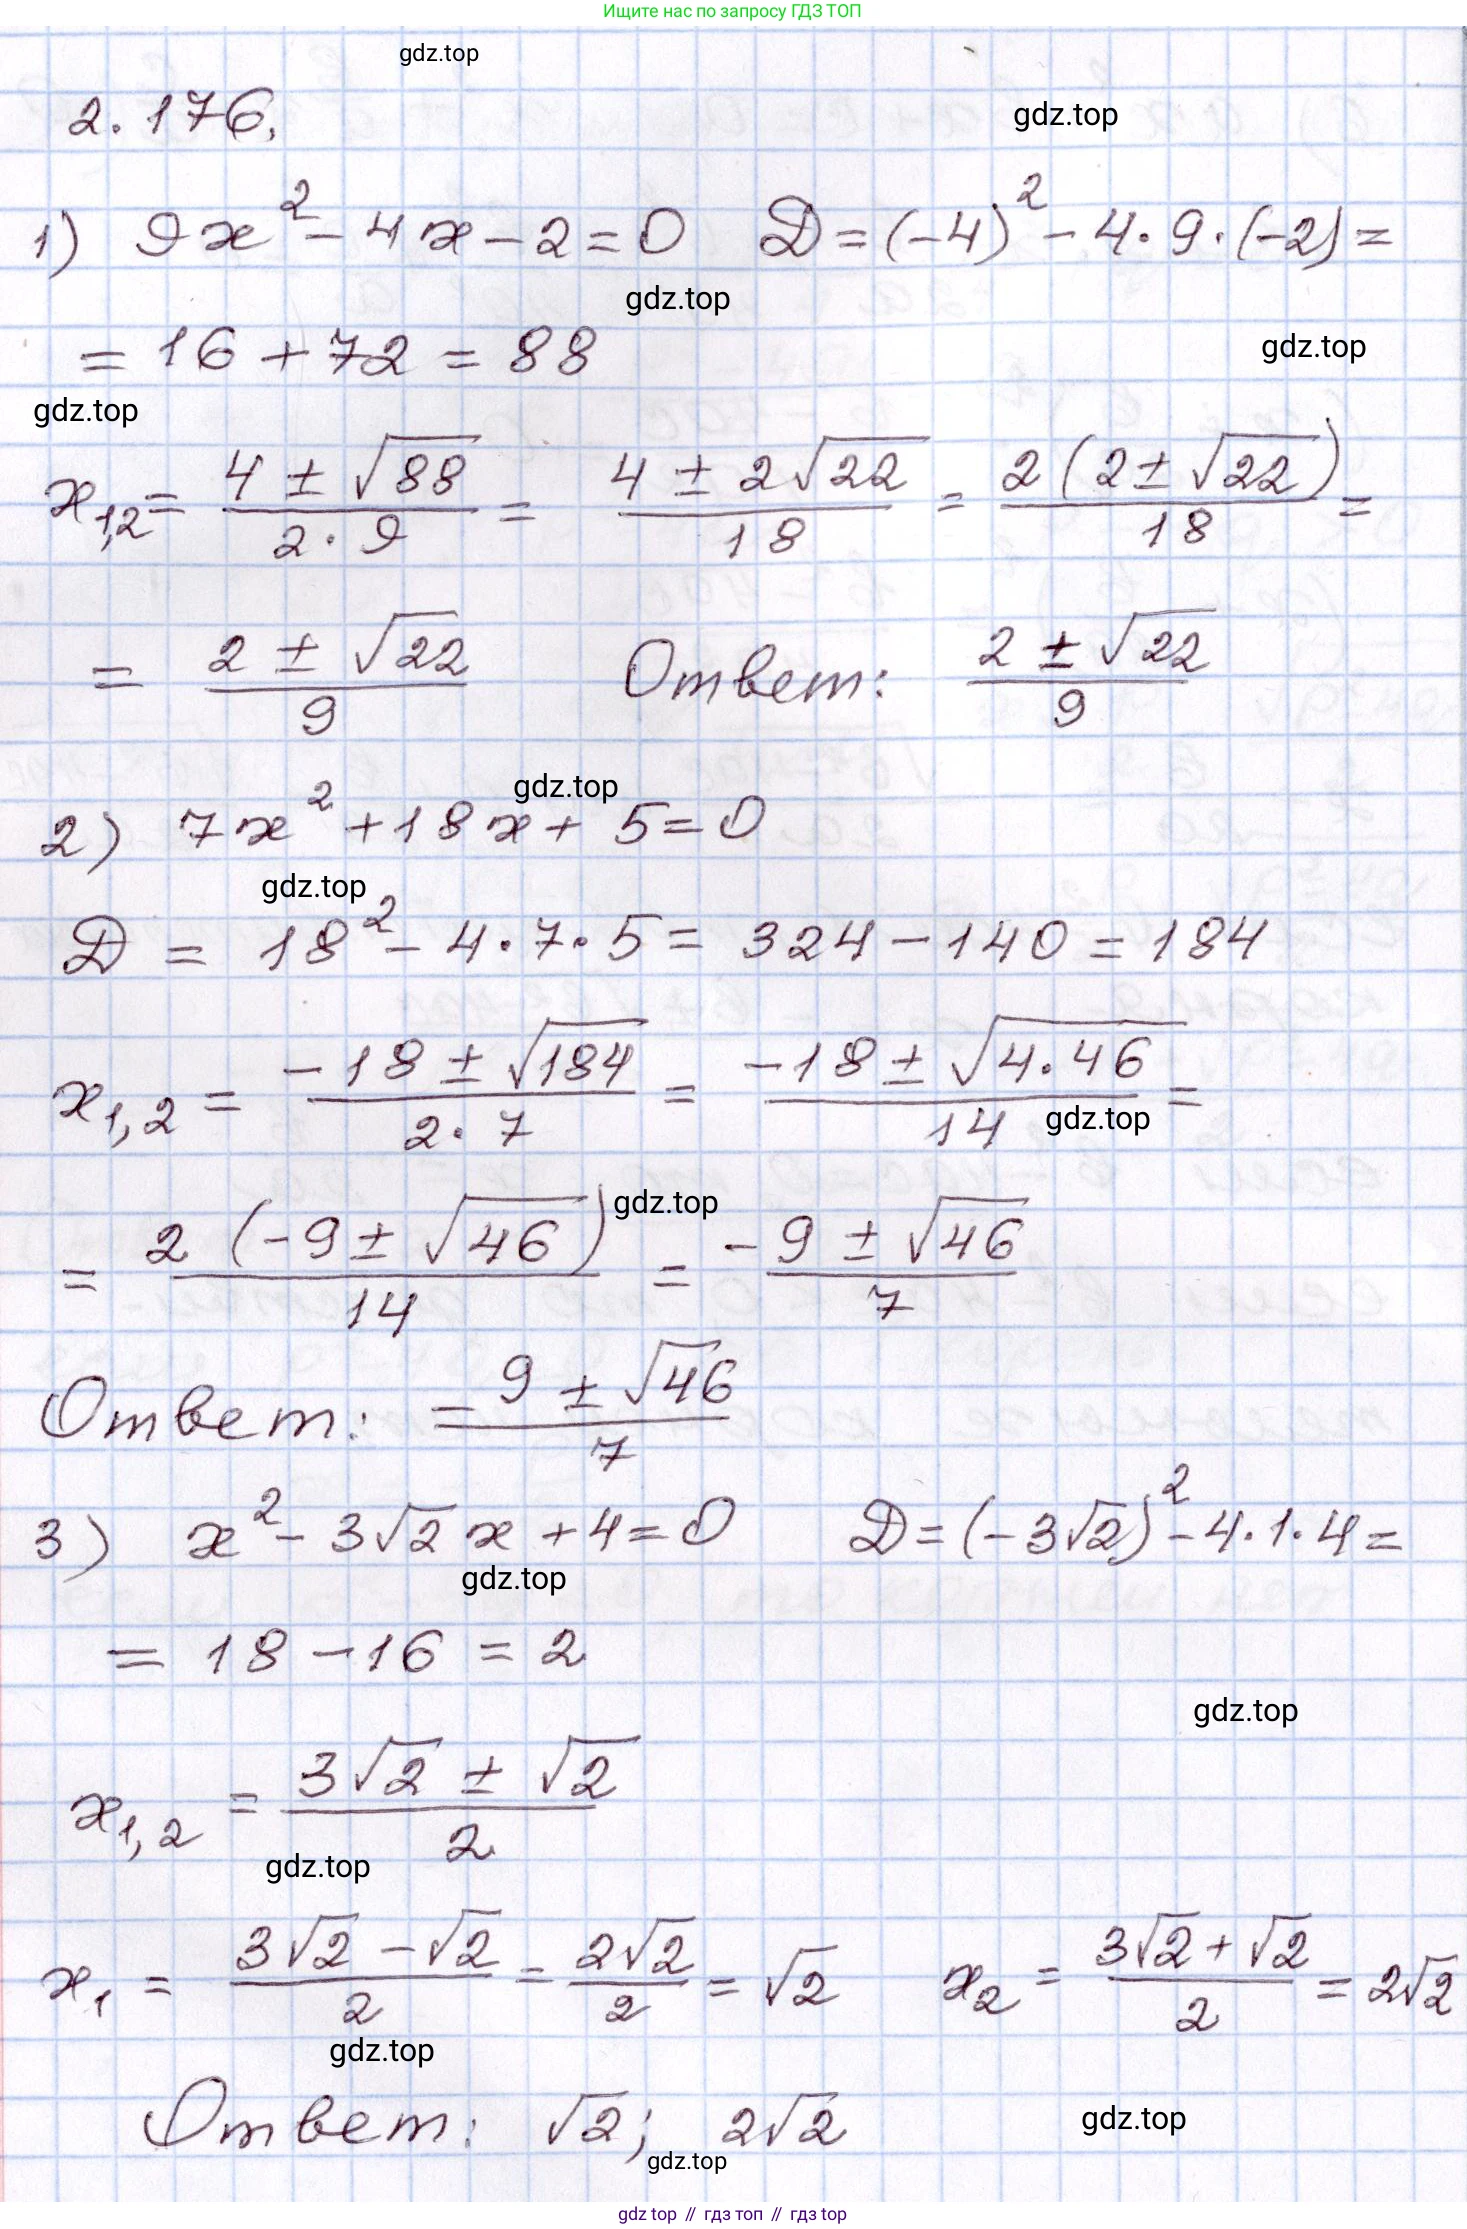 Ищите нас по запросу ГДЗ ТОП
gdz.top
2.176.
gdz.top
1) 9x² - 4x - 2 = 0 D = (-4)² - 4·9·(-2) =
gdz.top
= 16 + 72 = 88
gdz.top
gdz.top
x₁,₂ = (4 ± √88)/(2·9) = (4 ± 2√22)/18 = 2(2 ± √22)/18 =
= (2 ± √22)/9 Ответ: (2 ± √22)/9
gdz.top
2) 7x² + 18x + 5 = 0
gdz.top
D = 18² - 4·7·5 = 324 - 140 = 184
x₁,₂ = (-18 ± √184)/(2·7) = (-18 ± √(4·46))/14 =
gdz.top
gdz.top
= 2(-9 ± √46)/14 = (-9 ± √46)/7
Ответ: (-9 ± √46)/7
3) x² - 3√2 x + 4 = 0 D = (-3√2)² - 4·1·4 =
gdz.top
= 18 - 16 = 2
gdz.top
x₁,₂ = (3√2 ± √2)/2
gdz.top
x₁ = (3√2 - √2)/2 = 2√2/2 = √2 x₂ = (3√2 + √2)/2 = 2√2
gdz.top
Ответ: √2; 2√2
gdz.top
gdz.top
gdz top // гдз топ // гдз top